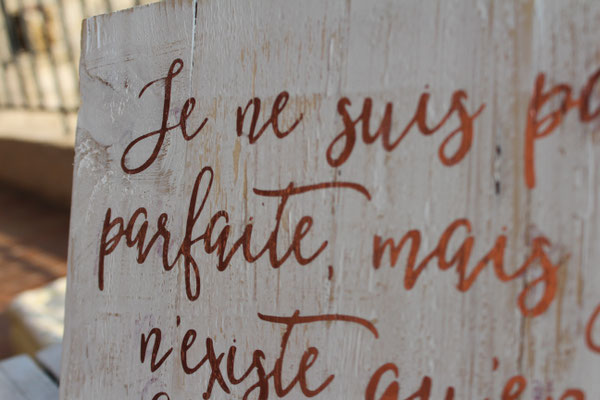 Je ne suis pa
parfaite, mais
n'existe qu'en